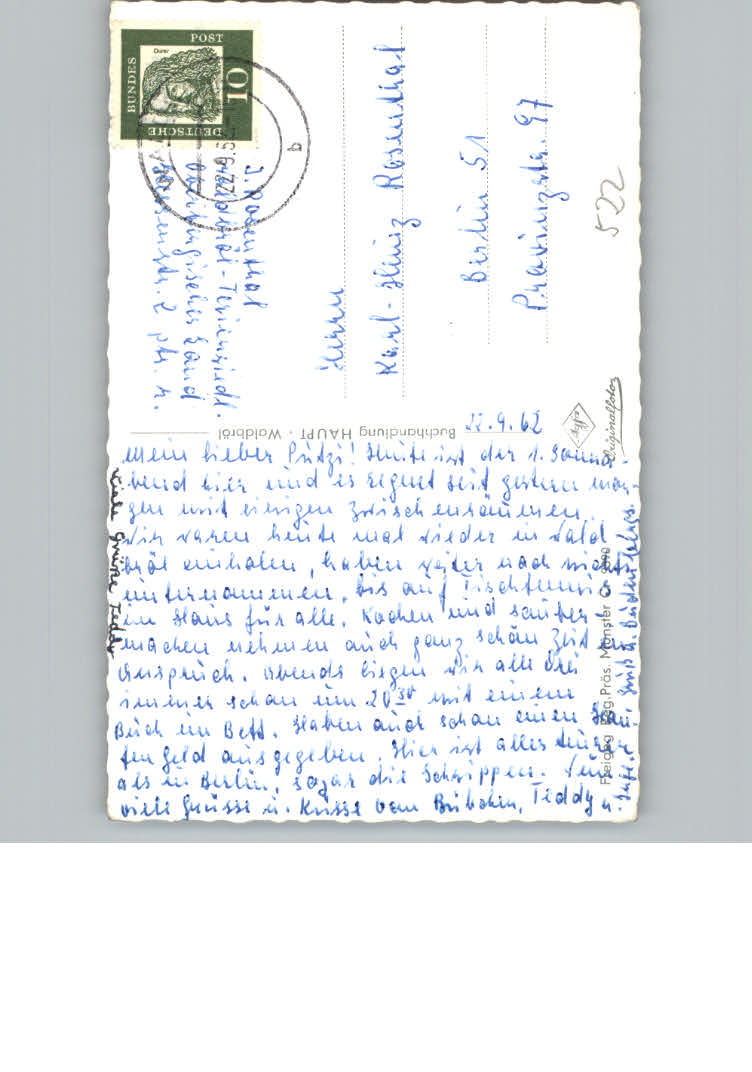 22.9.62
Mein lieber Putzi! Heute ist der 1. Sonna-
bend hier und es regnet seit gestern mor-
gen mit einigen Zwischenräumen.
Wir waren heute mal wieder in Wald
bröl einholen, haben weiter noch nichts
unternommen, bis auf Tischtennis
im Haus für alle. Kochen und sauber
machen nehmen auch ganz schön Zeit in
Anspruch. Abends liegen wir alle drei
immer schon um 20 30 mit einem
Buch im Bett. Haben auch schon einen Hau-
fen Geld ausgegeben. Hier ist alles teurer
als in Berlin, sogar die Schrippen. Nun
viele Grüsse u. Küsse vom Bübchen, Teddy u.
Viele Grüsse Teddy
J. Rosenthal
Waldbröl-Feriensiedl.
Oberbergisches Land
2 ptr. r.
Herrn
Karl-Heinz Rosenthal
Berlin 51
Provinzstr. 97
522
DEUTSCHE
BUNDES
POST
Dürer
10
22.9.6
q
Buchhandlung HAUPT · Waldbröl
Agfa
Originalfoto
Freigeg. Reg. Präs. Münster